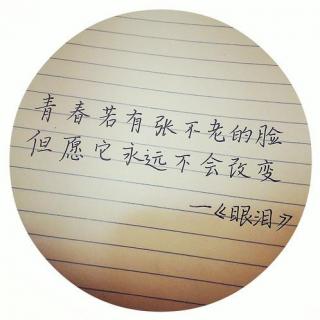 青春若有张不老的脸
但愿它永远不会改变
—《眼泪》